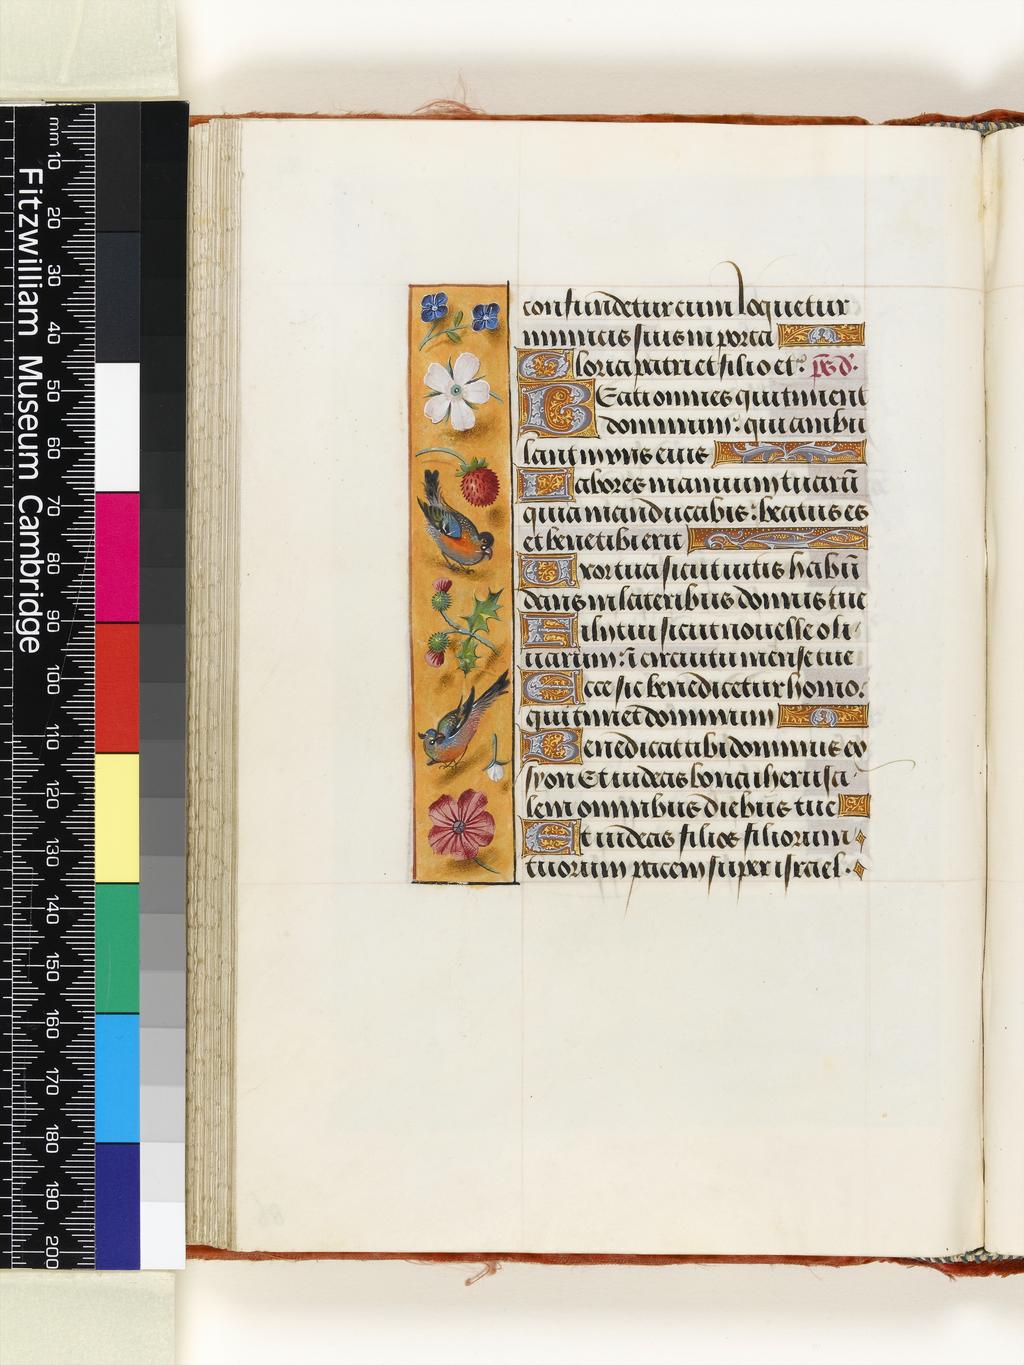 mm 10 20 30 40 50 60 70 80 90 100 110 120 130 140 150 160 170 180 190 200
Fitzwilliam Museum Cambridge
confundetur cum loquetur
inimicis suis in porta
Gloria patri et filio et. ps d.
Beati omnes qui timent
dominum: qui ambu
lant in viis eius
Labores manuum tuarū
quia manducabis: beatus es
et bene tibi erit
Uxor tua sicut vitis habū
dans in lateribus domus tue
Filii tui sicut nouelle oli
uarum: ī circuitu mense tue
Ecce sic benedicetur homo.
qui timet dominum
Benedicat tibi dominus ex
syon Et uideas bona iherusa
lem omnibus diebus tue
Et uideas filios filiorum
tuorum pacem super israel.